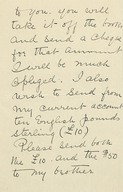 to you. you will
take it off the books
and send a cheque
for that ammount
I will be much
obliged. I also
wish to send from
my current account
ten English pounds
sterling (£10)
Please send both
the £10. and the $50
to my brother